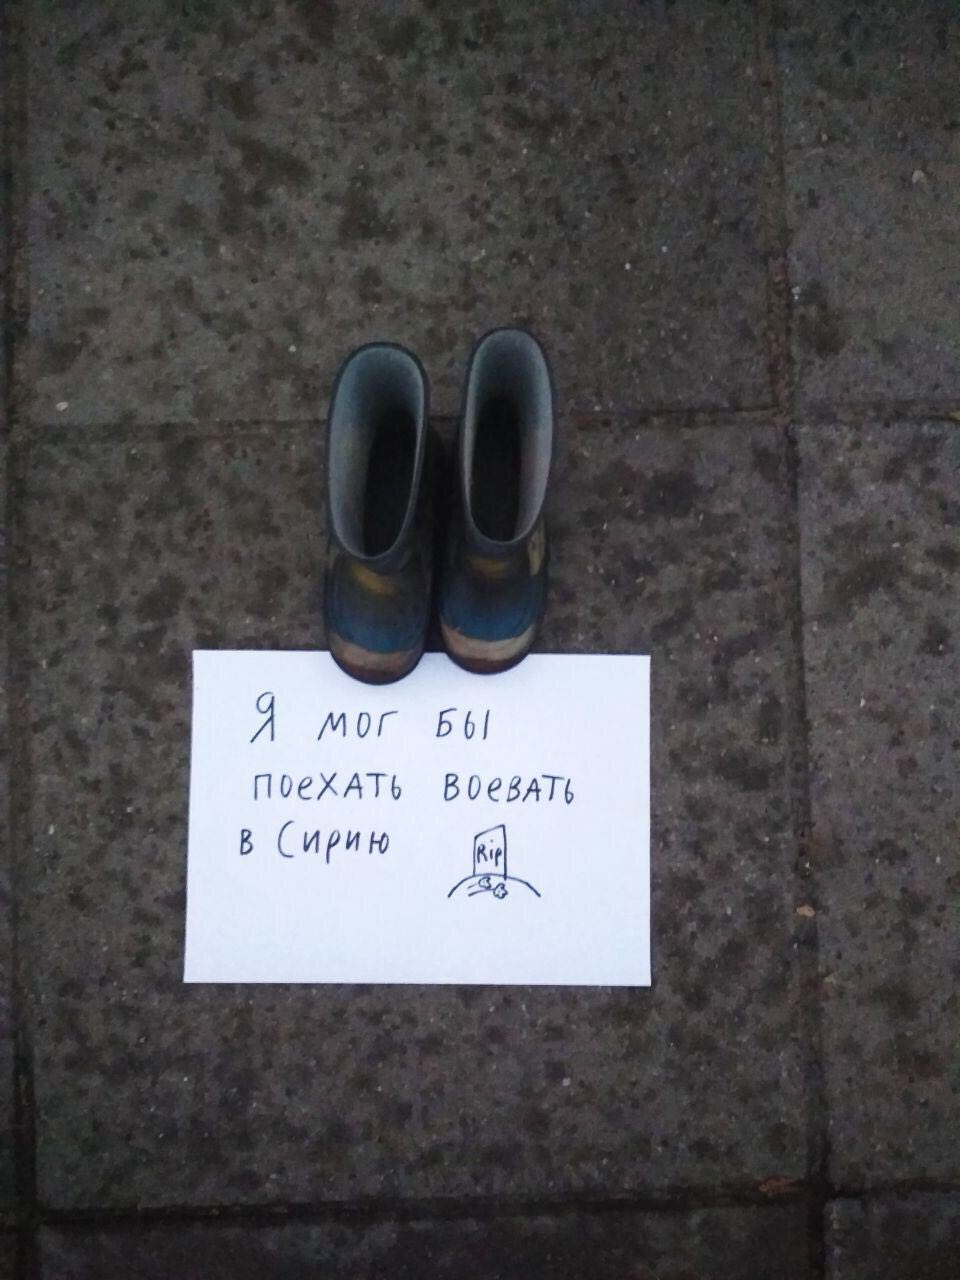 Я мог бы
поехать воевать
в Сирию
Rip